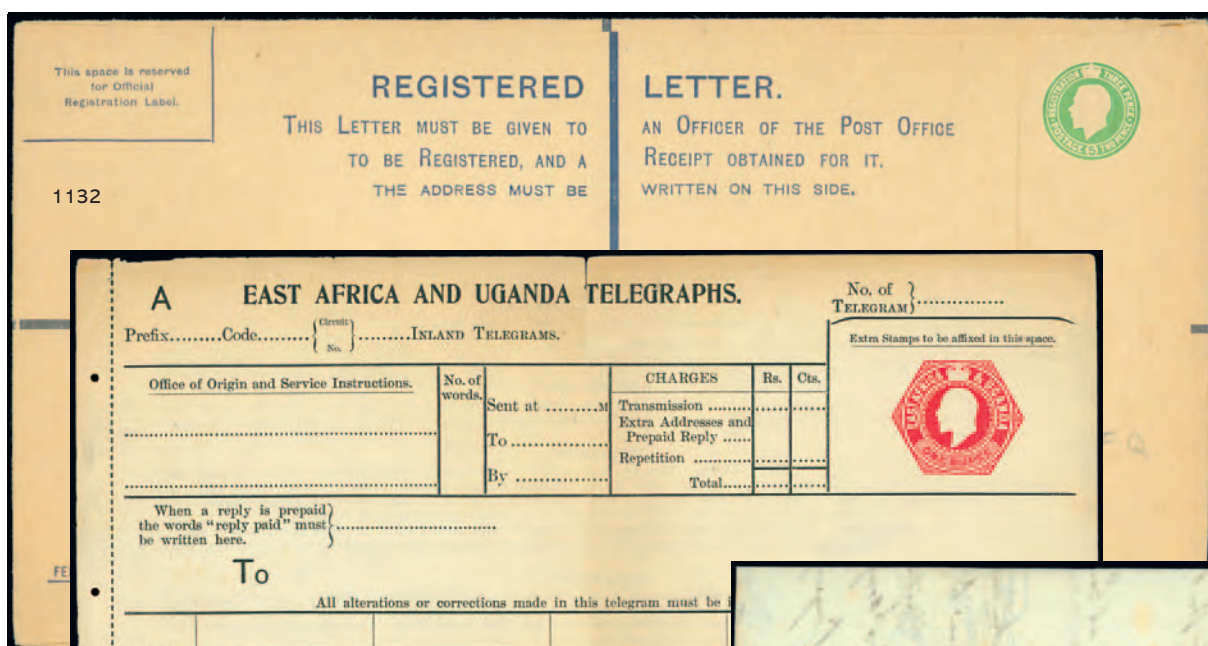 This space is reserved
for Official
Registration Label.
REGISTERED LETTER.
THIS LETTER MUST BE GIVEN TO AN OFFICER OF THE POST OFFICE
TO BE REGISTERED, AND A RECEIPT OBTAINED FOR IT.
THE ADDRESS MUST BE WRITTEN ON THIS SIDE.
REGISTRATION THREE PENCE
POSTAGE TWO PENCE
1132
A EAST AFRICA AND UGANDA TELEGRAPHS.
No. of
TELEGRAM}...............
Prefix.........Code.........{Circuit No.}.........INLAND TELEGRAMS.
Extra Stamps to be affixed in this space.
Office of Origin and Service Instructions.
No. of
words.
Sent at .........M
To .................
By ................
CHARGES Rs. Cts.
Transmission ..................
Extra Addresses and
Prepaid Reply ......
Repetition ..................
Total..................
When a reply is prepaid
the words "reply paid" must
be written here.
To
All alterations or corrections made in this telegram must be
FE